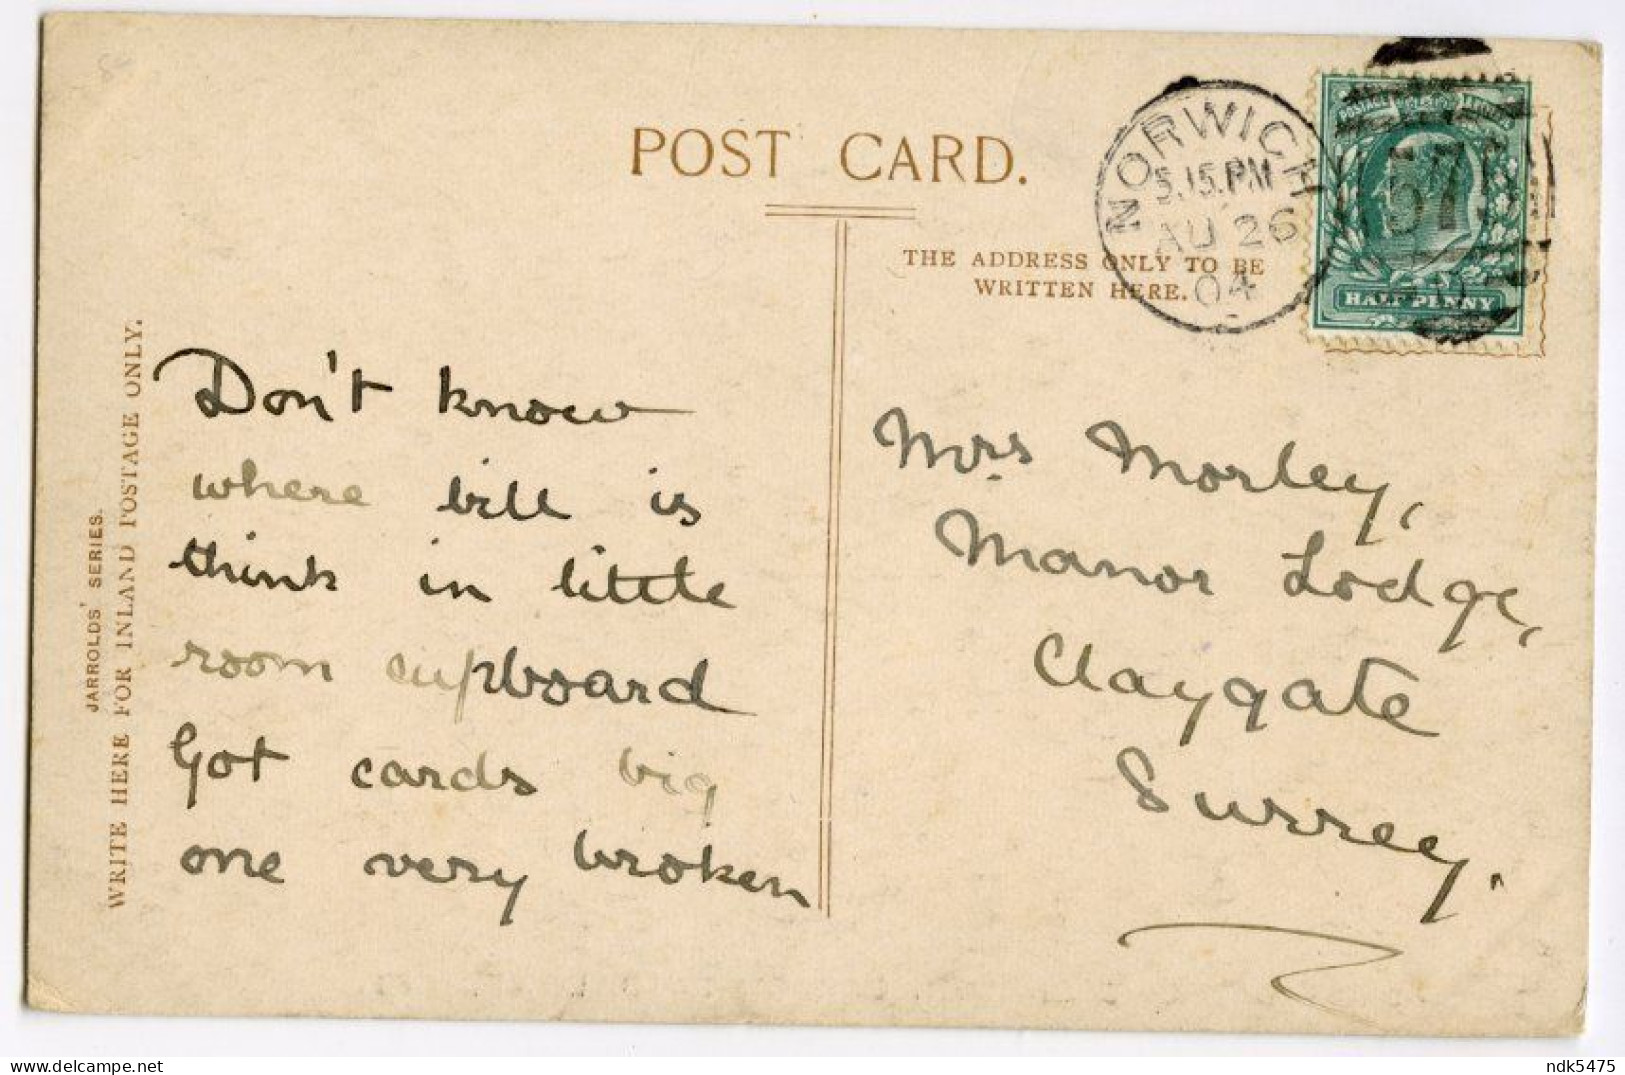 POST CARD.
THE ADDRESS ONLY TO BE
WRITTEN HERE.
NORWICH
5.15.PM
AU 26
04
HALF PENNY
JARROLDS' SERIES.
WRITE HERE FOR INLAND POSTAGE ONLY.
Don't know
where bill is
think in little
room cupboard
Got cards big
one very broken
Mrs Morley,
Manor Lodge,
Claygate
Surrey.
ndk5475